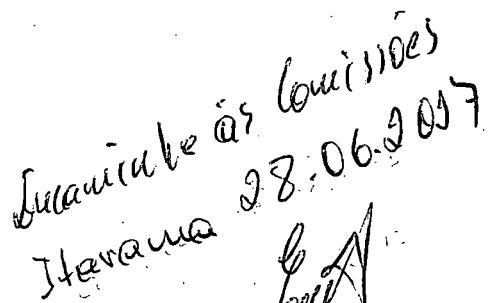 Encaminhe às Comissões
Itarama 28.06.2017